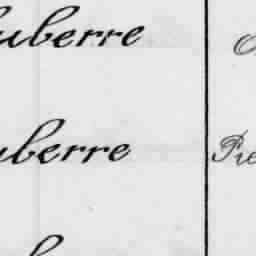 uberre
uberre
Pie